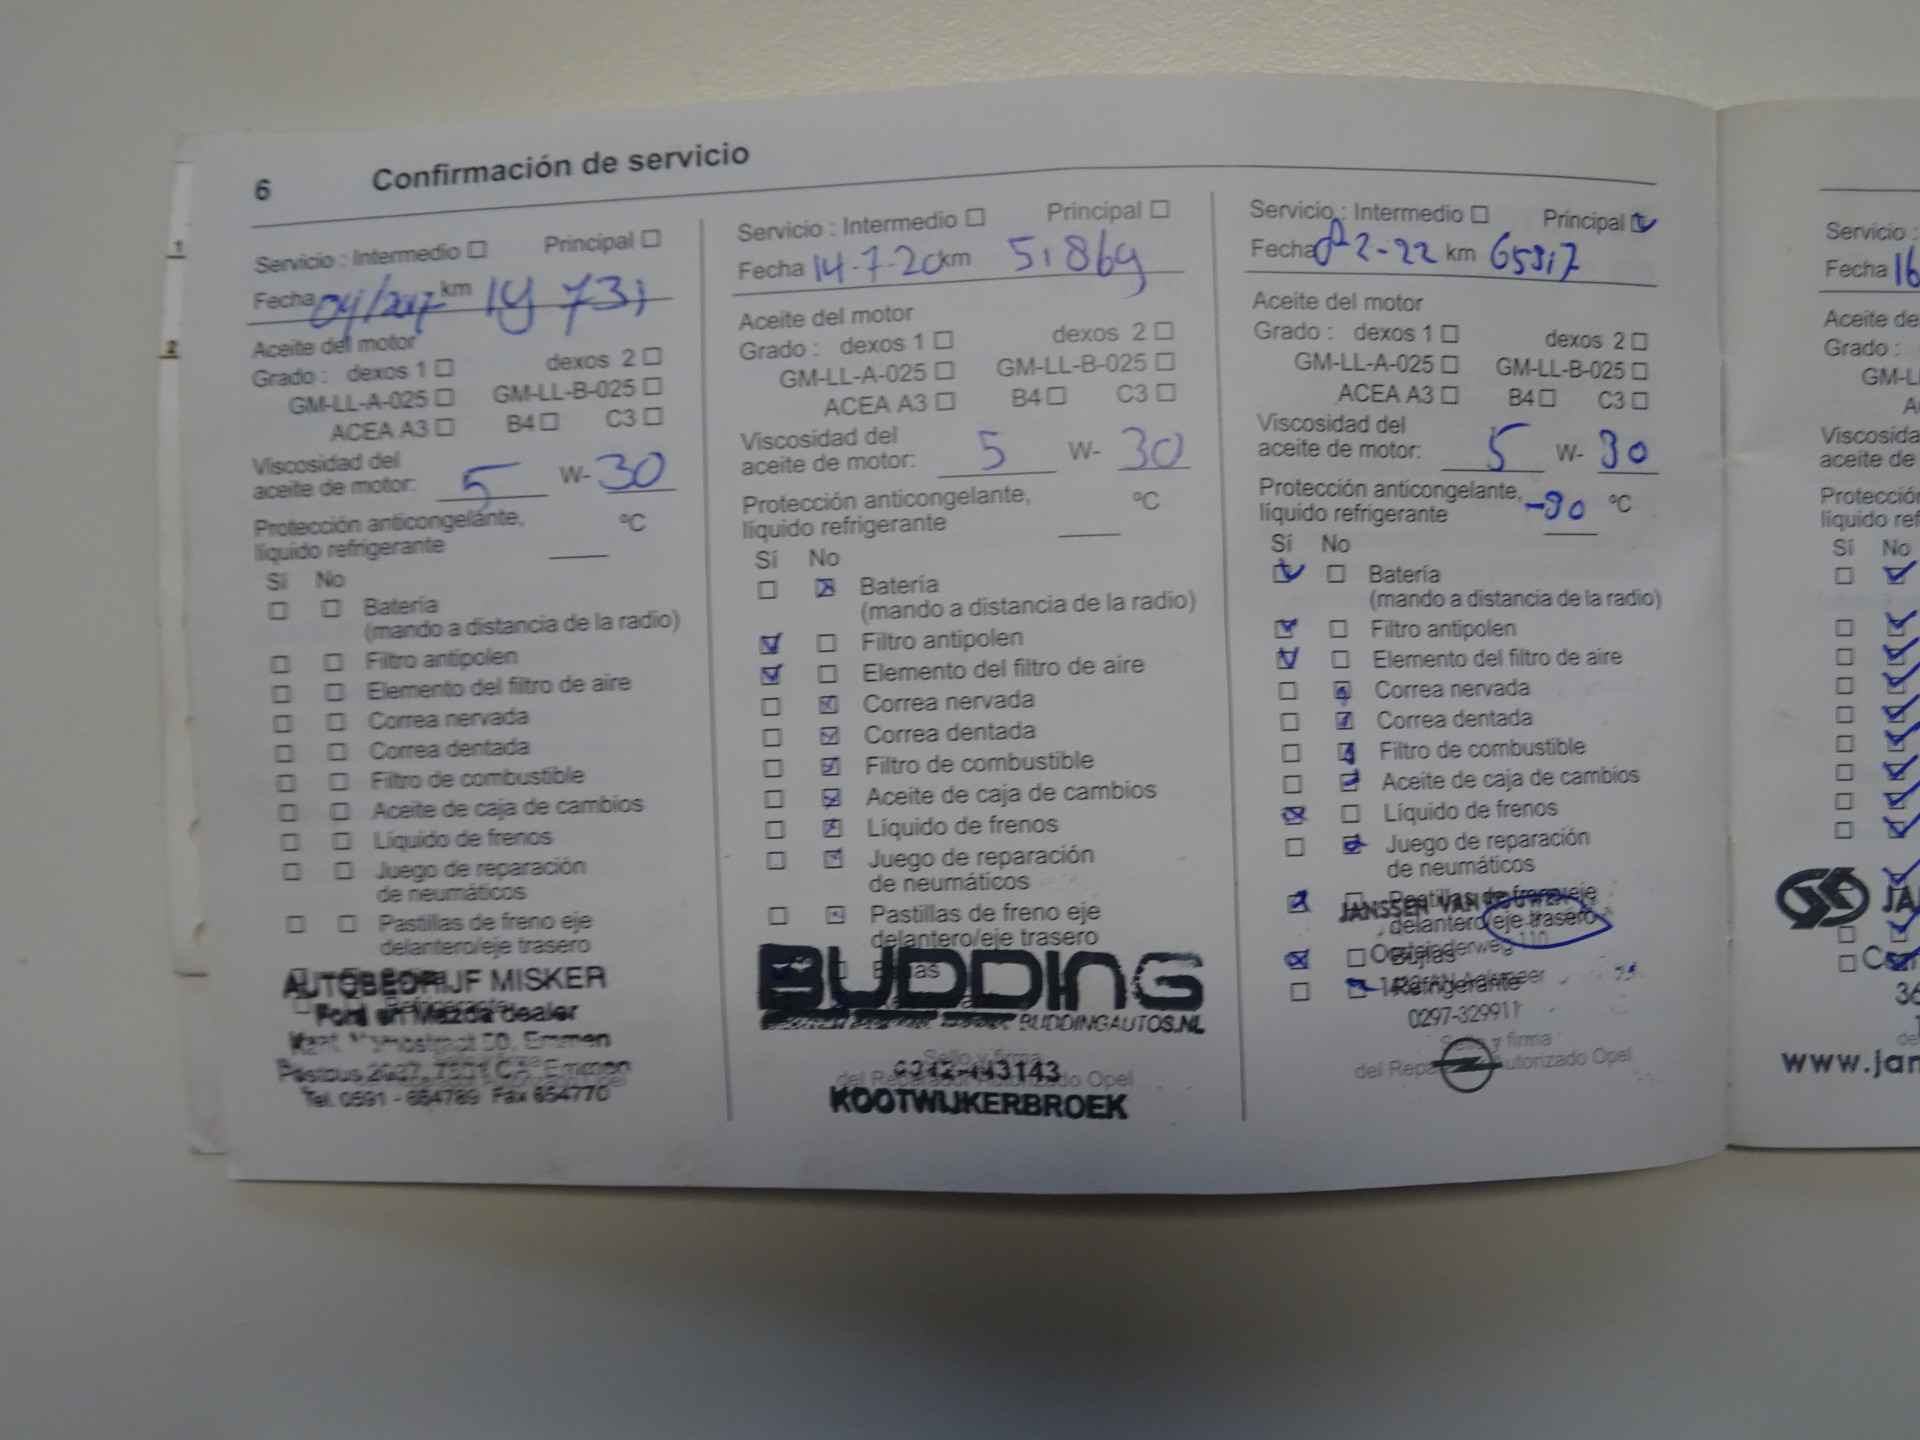 6 Confirmación de servicio
1
2
Servicio : Intermedio ☐ Principal ☐
Fecha km
Aceite del motor
Grado : dexos 1 ☐ dexos 2 ☐
GM-LL-A-025 ☐ GM-LL-B-025 ☐
ACEA A3 ☐ B4 ☐ C3 ☐
Viscosidad del
aceite de motor: 5 W- 30
Protección anticongelante, °C
líquido refrigerante
Sí No
☐ ☐ Batería
(mando a distancia de la radio)
☐ ☐ Filtro antipolen
☐ ☐ Elemento del filtro de aire
☐ ☐ Correa nervada
☐ ☐ Correa dentada
☐ ☐ Filtro de combustible
☐ ☐ Aceite de caja de cambios
☐ ☐ Líquido de frenos
☐ ☐ Juego de reparación
de neumáticos
☐ ☐ Pastillas de freno eje
delantero/eje trasero
AUTOBEDRIJF MISKER
Refrigerante
Ford en Mazda dealer
Emmen
Emmen
Tel. 0591 - Fax 654770
Servicio : Intermedio ☐ Principal ☐
Fecha 14-7-20 km 51869
Aceite del motor
Grado : dexos 1 ☐ dexos 2 ☐
GM-LL-A-025 ☐ GM-LL-B-025 ☐
ACEA A3 ☐ B4 ☐ C3 ☐
Viscosidad del
aceite de motor: 5 W- 30
Protección anticongelante, °C
líquido refrigerante
Sí No
☐ ☒ Batería
(mando a distancia de la radio)
☑ ☐ Filtro antipolen
☑ ☐ Elemento del filtro de aire
☐ ☑ Correa nervada
☐ ☑ Correa dentada
☐ ☑ Filtro de combustible
☐ ☑ Aceite de caja de cambios
☐ ☑ Líquido de frenos
☐ ☑ Juego de reparación
de neumáticos
☐ ☑ Pastillas de freno eje
delantero/eje trasero
BUDDING
BUDDINGAUTOS.NL
Sello y firma
del Reparador Autorizado Opel
KOOTWIJKERBROEK
Servicio : Intermedio ☐ Principal ☑
Fecha 2-22 km 65317
Aceite del motor
Grado : dexos 1 ☐ dexos 2 ☐
GM-LL-A-025 ☐ GM-LL-B-025 ☐
ACEA A3 ☐ B4 ☐ C3 ☐
Viscosidad del
aceite de motor: 5 W- 30
Protección anticongelante, -30 °C
líquido refrigerante
Sí No
☑ ☐ Batería
(mando a distancia de la radio)
☑ ☐ Filtro antipolen
☑ ☐ Elemento del filtro de aire
☐ ☑ Correa nervada
☐ ☑ Correa dentada
☐ ☑ Filtro de combustible
☐ ☑ Aceite de caja de cambios
☒ ☐ Líquido de frenos
☐ ☑ Juego de reparación
de neumáticos
☑ ☐ Pastillas de freno eje
JANSSEN VAN
delantero/eje trasero
☒ ☐ Bujías
☐ ☑ Refrigerante
Aalsmeer
0297-329911
Sello y firma
del Reparador Autorizado Opel
Servicio :
Fecha 16
Aceite de
Grado :
GM-L
A
Viscosida
aceite de
Protección
líquido ref
Sí No
☐ ☑
☐ ☑
☐ ☑
☐ ☑
☐ ☑
☐ ☑
☐ ☑
☐ ☑
☐ ☑
JA
36
www.jan